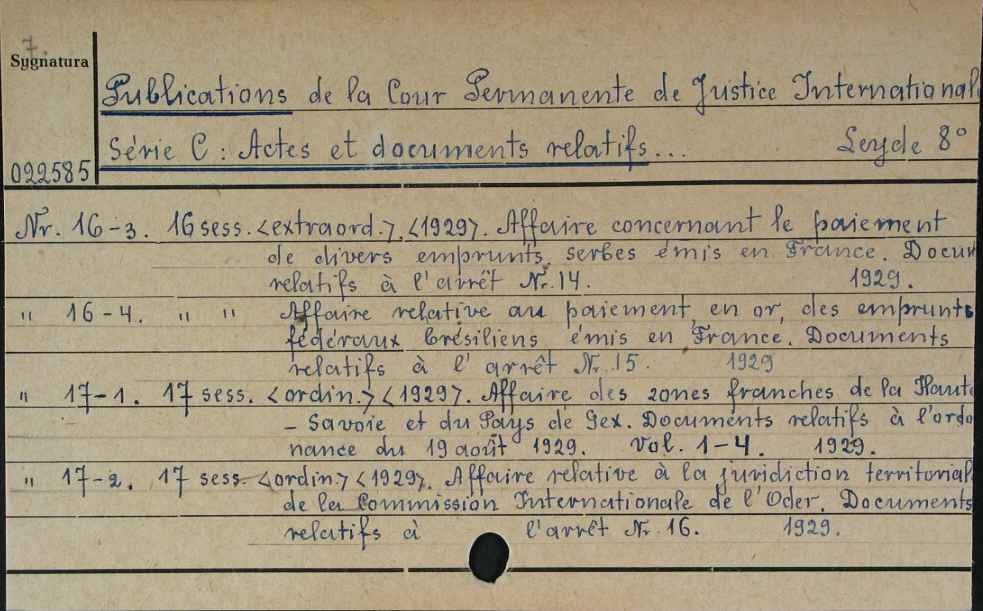 7.
Sygnatura
Publications de la Cour Permanente de Justice International
Série C : Actes et documents relatifs... Leyde 8°
022585
Nr. 16-3. 16 sess. <extraord.>. <1929>. Affaire concernant le paiement
de divers emprunts serbes émis en France. Docum
relatifs à l'arrêt Nr. 14. 1929.
" 16-4. " " Affaire relative au paiement, en or, des emprunts
fédéraux brésiliens émis en France. Documents
relatifs à l'arrêt Nr. 15. 1929
" 17-1. 17 sess. <ordin.> <1929>. Affaire des zones franches de la Haute
- Savoie et du Pays de Gex. Documents relatifs à l'ordo
nance du 19 août 1929. Vol. 1-4. 1929.
" 17-2. 17 sess. <ordin> <1929>. Affaire relative à la juridiction territorial
de la Commission Internationale de l'Oder. Documents
relatifs à l'arrêt Nr. 16. 1929.